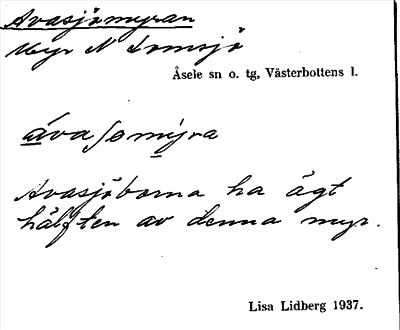 Avasjömyran
Myr N Lomsjö
Åsele sn o. tg, Västerbottens l.
ávaſömýra
Avasjöborna ha ägt
hälften av denna myr.
Lisa Lidberg 1937.